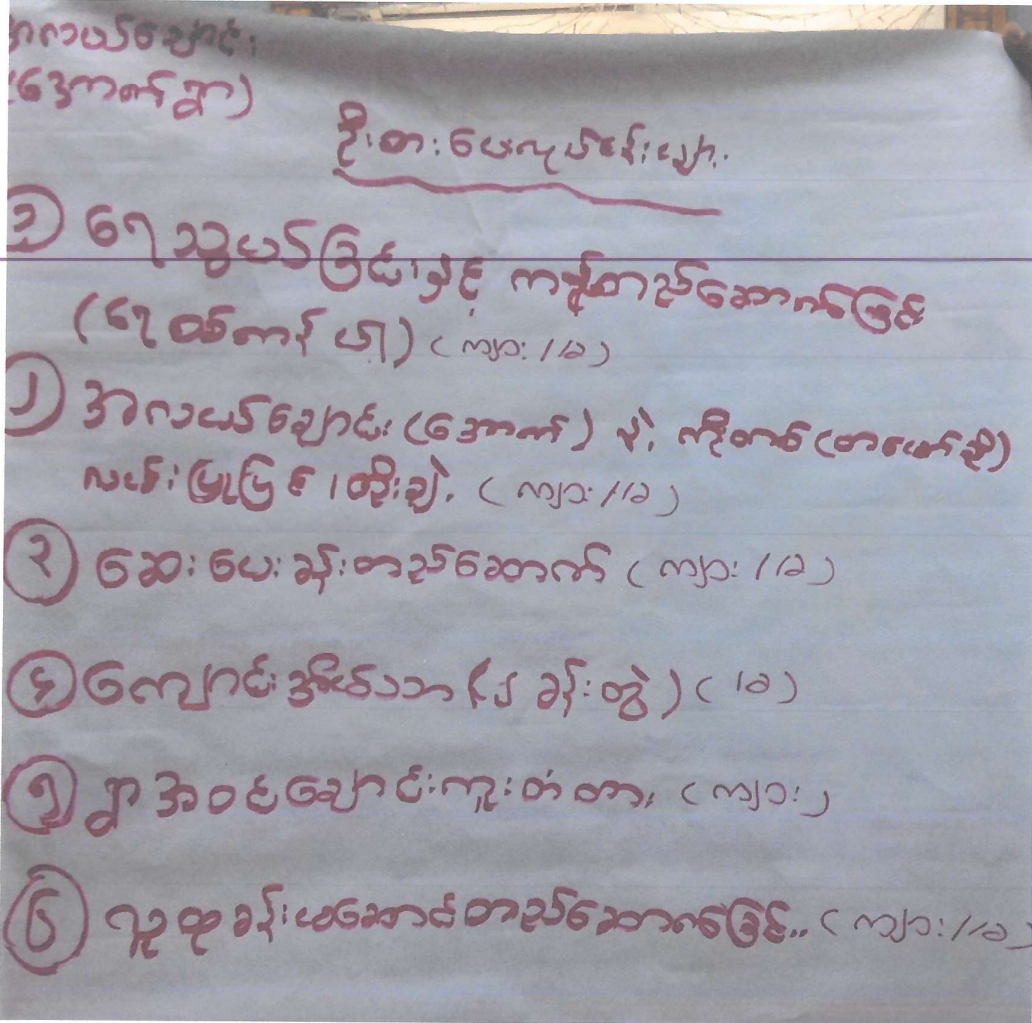 အလယ်ချောင်း
(အောက်ရွာ)
ဦးစားပေးလုပ်ငန်းများ
၁ ရေသွယ်ခြင်းနှင့် ကန်တည်ဆောက်ခြင်း
(ရေထိတကန် ပါ) (ကျား / ခ)
၂ အလယ်ချောင်း (အောက်) နဲ့
လမ်းပြုပြင် ၊ တိုးချဲ့ (ကျား / ခ)
၃ ဆေးပေးခန်းတည်ဆောက် (ကျား / ခ)
၄ ကျောင်းအိမ်သာ (၂ ခန်းတွဲ) ( / ခ)
၅ ရွာအဝင်ချောင်းကူးတံတား (ကျား)
၆ လူထုခန်းမဆောင်တည်ဆောက်ခြင်း.. (ကျား / ခ)